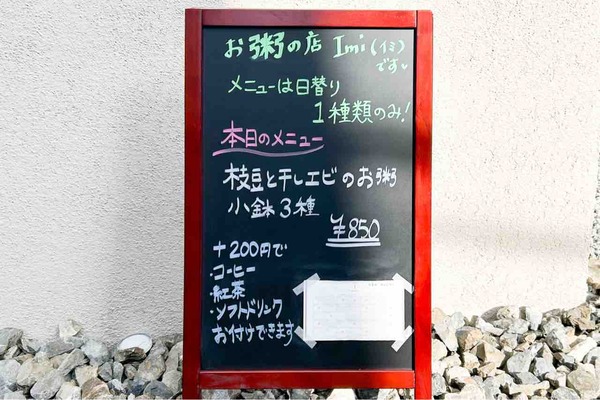 お粥の店 Imi(イミ)
です
メニューは日替り
1種類のみ!
本日のメニュー
枝豆と干しエビのお粥
小鉢3種
¥850
+200円で
・コーヒー
・紅茶
・ソフトドリンク
お付けできます